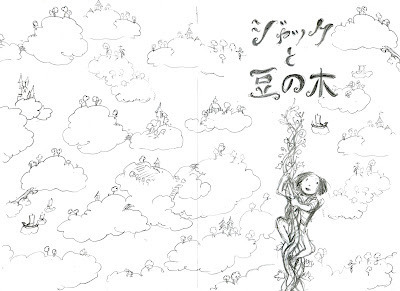 ジャック
と
豆の木